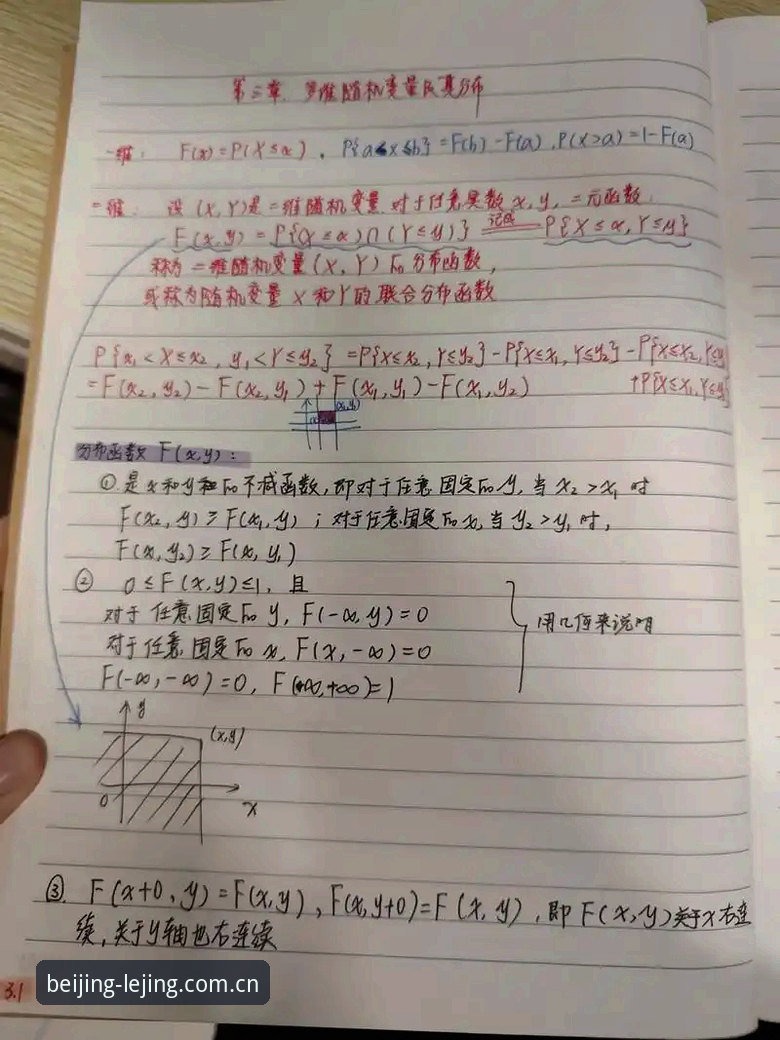 第三章. 多维随机变量及其分布
一维: F(x)=P(X≤x), P{a<x≤b}=F(b)-F(a), P(X>a)=1-F(a)
二维: 设(X,Y)是二维随机变量.对于任意实数x,y,二元函数
F(x,y)=P{(X≤x)∩(Y≤y)} 记成 P{X≤x,Y≤y}
称为二维随机变量(X,Y)的分布函数,
或称为随机变量X和Y的联合分布函数
P{x₁<X≤x₂, y₁<Y≤y₂}=P{X≤x₂,Y≤y₂}-P{X≤x₁,Y≤y₂}-P{X≤x₂,Y≤y
=F(x₂,y₂)-F(x₂,y₁)+F(x₁,y₁)-F(x₁,y₂) +P{X≤x₁,Y≤y
分布函数F(x,y):
①是x和y的不减函数,即对于任意固定的y,当x₂>x₁时
F(x₂,y)≥F(x₁,y);对于任意固定的x,当y₂>y₁时,
F(x,y₂)≥F(x,y₁)
② 0≤F(x,y)≤1,且
对于任意固定的y,F(-∞,y)=0
对于任意固定的x,F(x,-∞)=0
用几何来说明
F(-∞,-∞)=0, F(+∞,+∞)=1
y
(x,y)
0
x
③ F(x+0,y)=F(x,y),F(x,y+0)=F(x,y),即F(x,y)关于x右连
续,关于y轴也右连续
3.1
beijing-lejing.com.cn